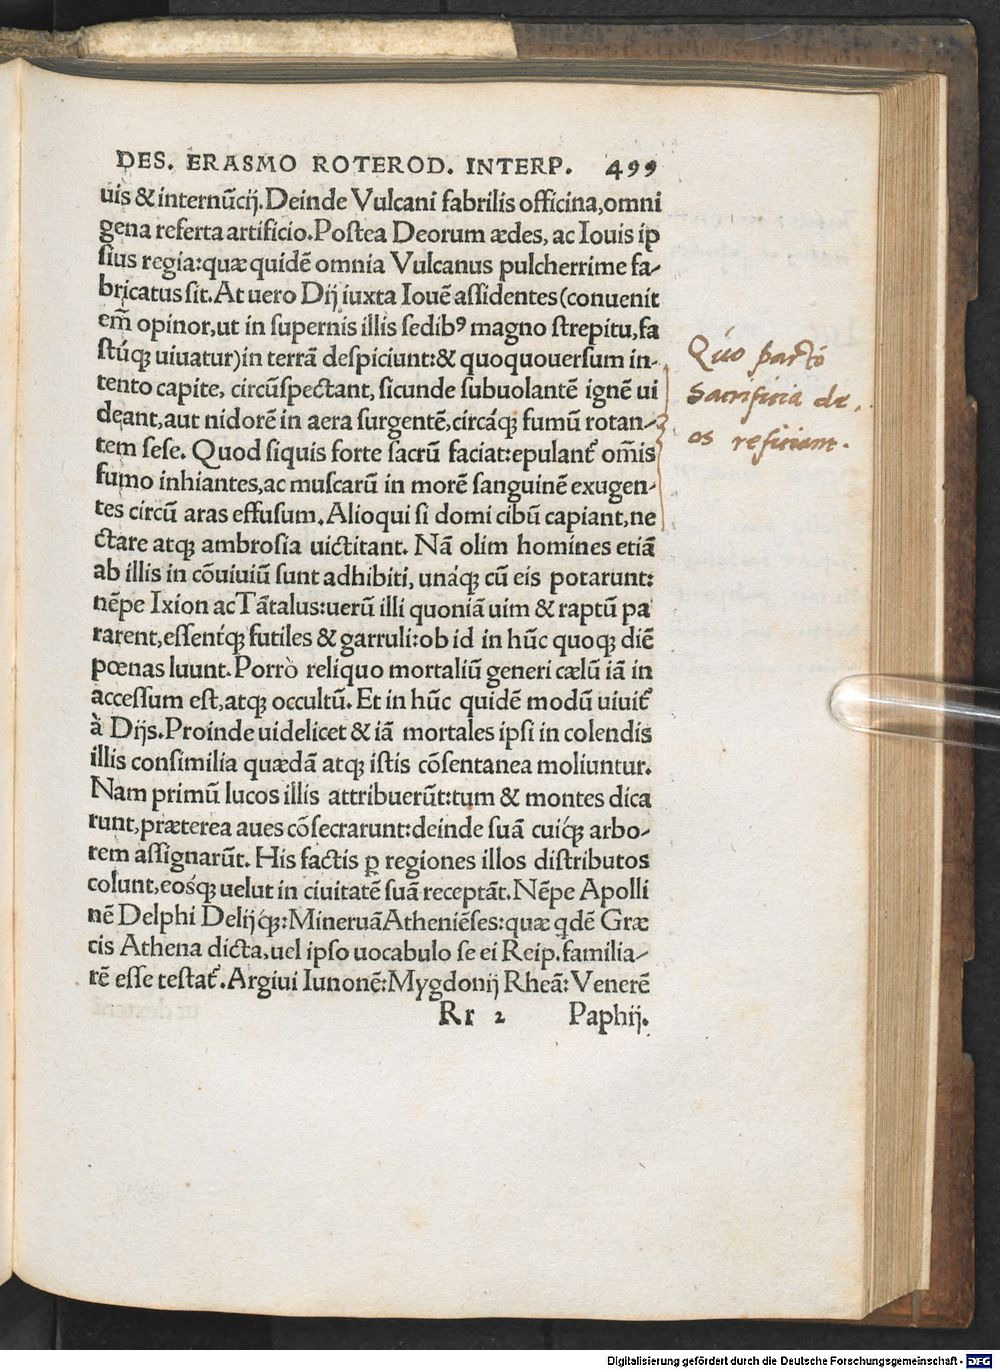 DES. ERASMO ROTEROD. INTERP. 499
uis & internũcij. Deinde Vulcani fabrilis officina, omni
gena referta artificio. Postea Deorum ædes, ac Iouis ip
sius regia: quæ quidẽ omnia Vulcanus pulcherrime fa-
bricatus sit. At uero Dij iuxta Iouẽ assidentes (conuenit
em̃ opinor, ut in supernis illis sedibꝰ magno strepitu, fa
stúqꝫ uiuatur) in terrã despiciunt: & quoquouersum in-
tento capite, circũspectant, sicunde subuolantẽ ignẽ ui
deant, aut nidorẽ in aera surgentẽ, circáqꝫ fumũ rotan-
tem sese. Quod siquis forte sacrũ faciat: epulant̃ om̃is
fumo inhiantes, ac muscarũ in morẽ sanguinẽ exugen-
tes circũ aras effusum. Alioqui si domi cibũ capiant, ne
ctare atqꝫ ambrosia uictitant. Nã olim homines etiã
ab illis in cõuiuiũ sunt adhibiti, unáqꝫ cũ eis potarunt:
nẽpe Ixion ac Tãtalus: uerũ illi quoniã uim & raptũ pa
rarent, essentqꝫ futiles & garruli: ob id in hũc quoqꝫ diẽ
pœnas luunt. Porrò reliquo mortaliũ generi cælũ iã in
accessum est, atqꝫ occultũ. Et in hũc quidẽ modũ uiuit̃
à Dijs. Proinde uidelicet & iã mortales ipsi in colendis
illis consimilia quædã atqꝫ istis cõsentanea moliuntur.
Nam primũ lucos illis attribuerũt: tum & montes dica
runt, præterea aues cõsecrarunt: deinde suã cuiqꝫ arbo-
rem assignarũt. His factis ꝑ regiones illos distributos
colunt, eosqꝫ uelut in ciuitatẽ suã receptãt. Nẽpe Apolli
nẽ Delphi Delijqꝫ: Mineruã Atheniẽses: quæ qdẽ Græ
cis Athena dicta, uel ipso uocabulo se ei Reip. familia-
rẽ esse testat̃. Argiui Iunonẽ: Mygdonij Rheã: Venerẽ
Rr 2 Paphij.
Quo pacto
sacrificia de-
os reficiant.
Digitalisierung gefördert durch die Deutsche Forschungsgemeinschaft - DFG